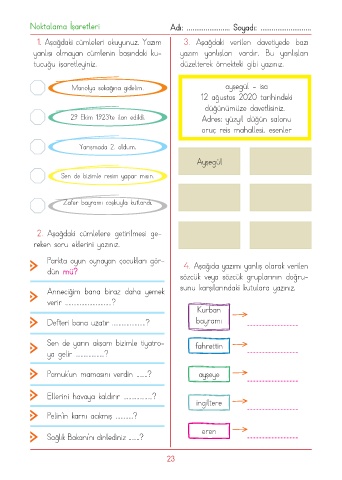 Noktalama İşaretleri
Adı: .................... Soyadı: ........................
1. Aşağıdaki cümleleri okuyunuz. Yazım
yanlışı olmayan cümlenin başındaki ku-
tucuğu işaretleyiniz.
Manolya sokağına gidelim.
29 Ekim 1923'te ilan edildi.
Yarışmada 2. oldum.
Sen de bizimle resim yapar mısın.
Zafer bayramı coşkuyla kutlandı.
2. Aşağıdaki cümlelere getirilmesi ge-
reken soru eklerini yazınız.
Parkta oyun oynayan çocukları gör-
dün mü?
Anneciğim bana biraz daha yemek
verir ........................?
Defteri bana uzatır .................?
Sen de yarın akşam bizimle tiyatro-
ya gelir ...............?
Pamuk'un mamasını verdin ......?
Ellerini havaya kaldırır ...............?
Pelin'in karnı acıkmış .........?
Sağlık Bakanı'nı dinlediniz ......?
3. Aşağıdaki verilen davetiyede bazı
yazım yanlışları vardır. Bu yanlışları
düzelterek örnekteki gibi yazınız.
ayşegül - isa
12 ağustos 2020 tarihindeki
düğünümüze davetlisiniz.
Adres: yüzyıl düğün salonu
oruç reis mahallesi, esenler
Ayşegül
4. Aşağıda yazımı yanlış olarak verilen
sözcük veya sözcük gruplarının doğru-
sunu karşılarındaki kutulara yazınız.
Kurban
bayramı
fahrettin
ayşeye
ingiltere
eren
23